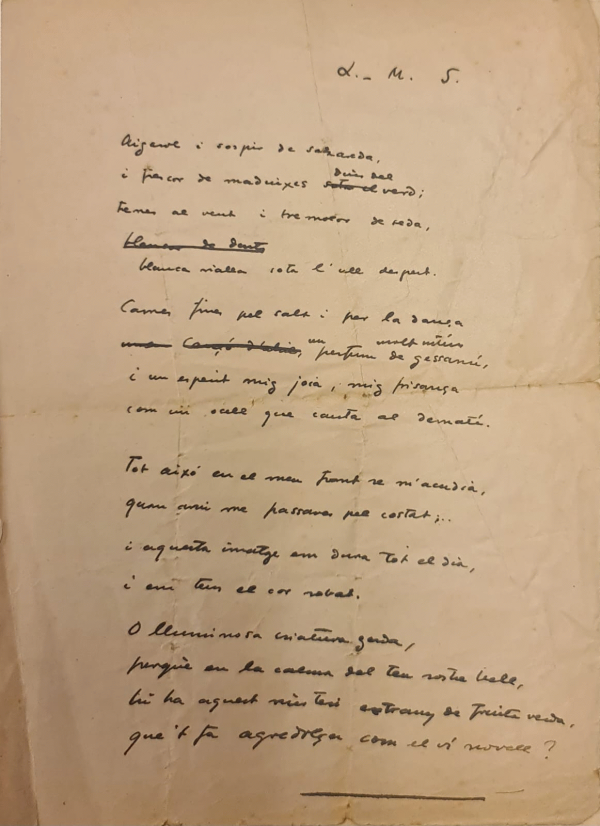 L.- M. S.
Aigerol i sospir de salzareda,
i frescor de maduixes dins del verd;
trenes al vent i tremolor de seda,
blanca rialla sota l'ull despert.
Cames fines pel salt i per la dança
un perfum molt íntim de gessamí,
i un esperit mig joia, mig frisança
com un ocell que canta al dematí.
Tot això en el meu front se m'acudia,
quan ahir me passares pel costat;..
i aquesta imatge em dura tot el dia,
i em tens el cor robat.
O lluminosa criatura gerda,
perquè en la calma del teu rostre bell,
hi ha aquest misteri estrany de fruita verda,
que't fa agredolça com el vi novell?